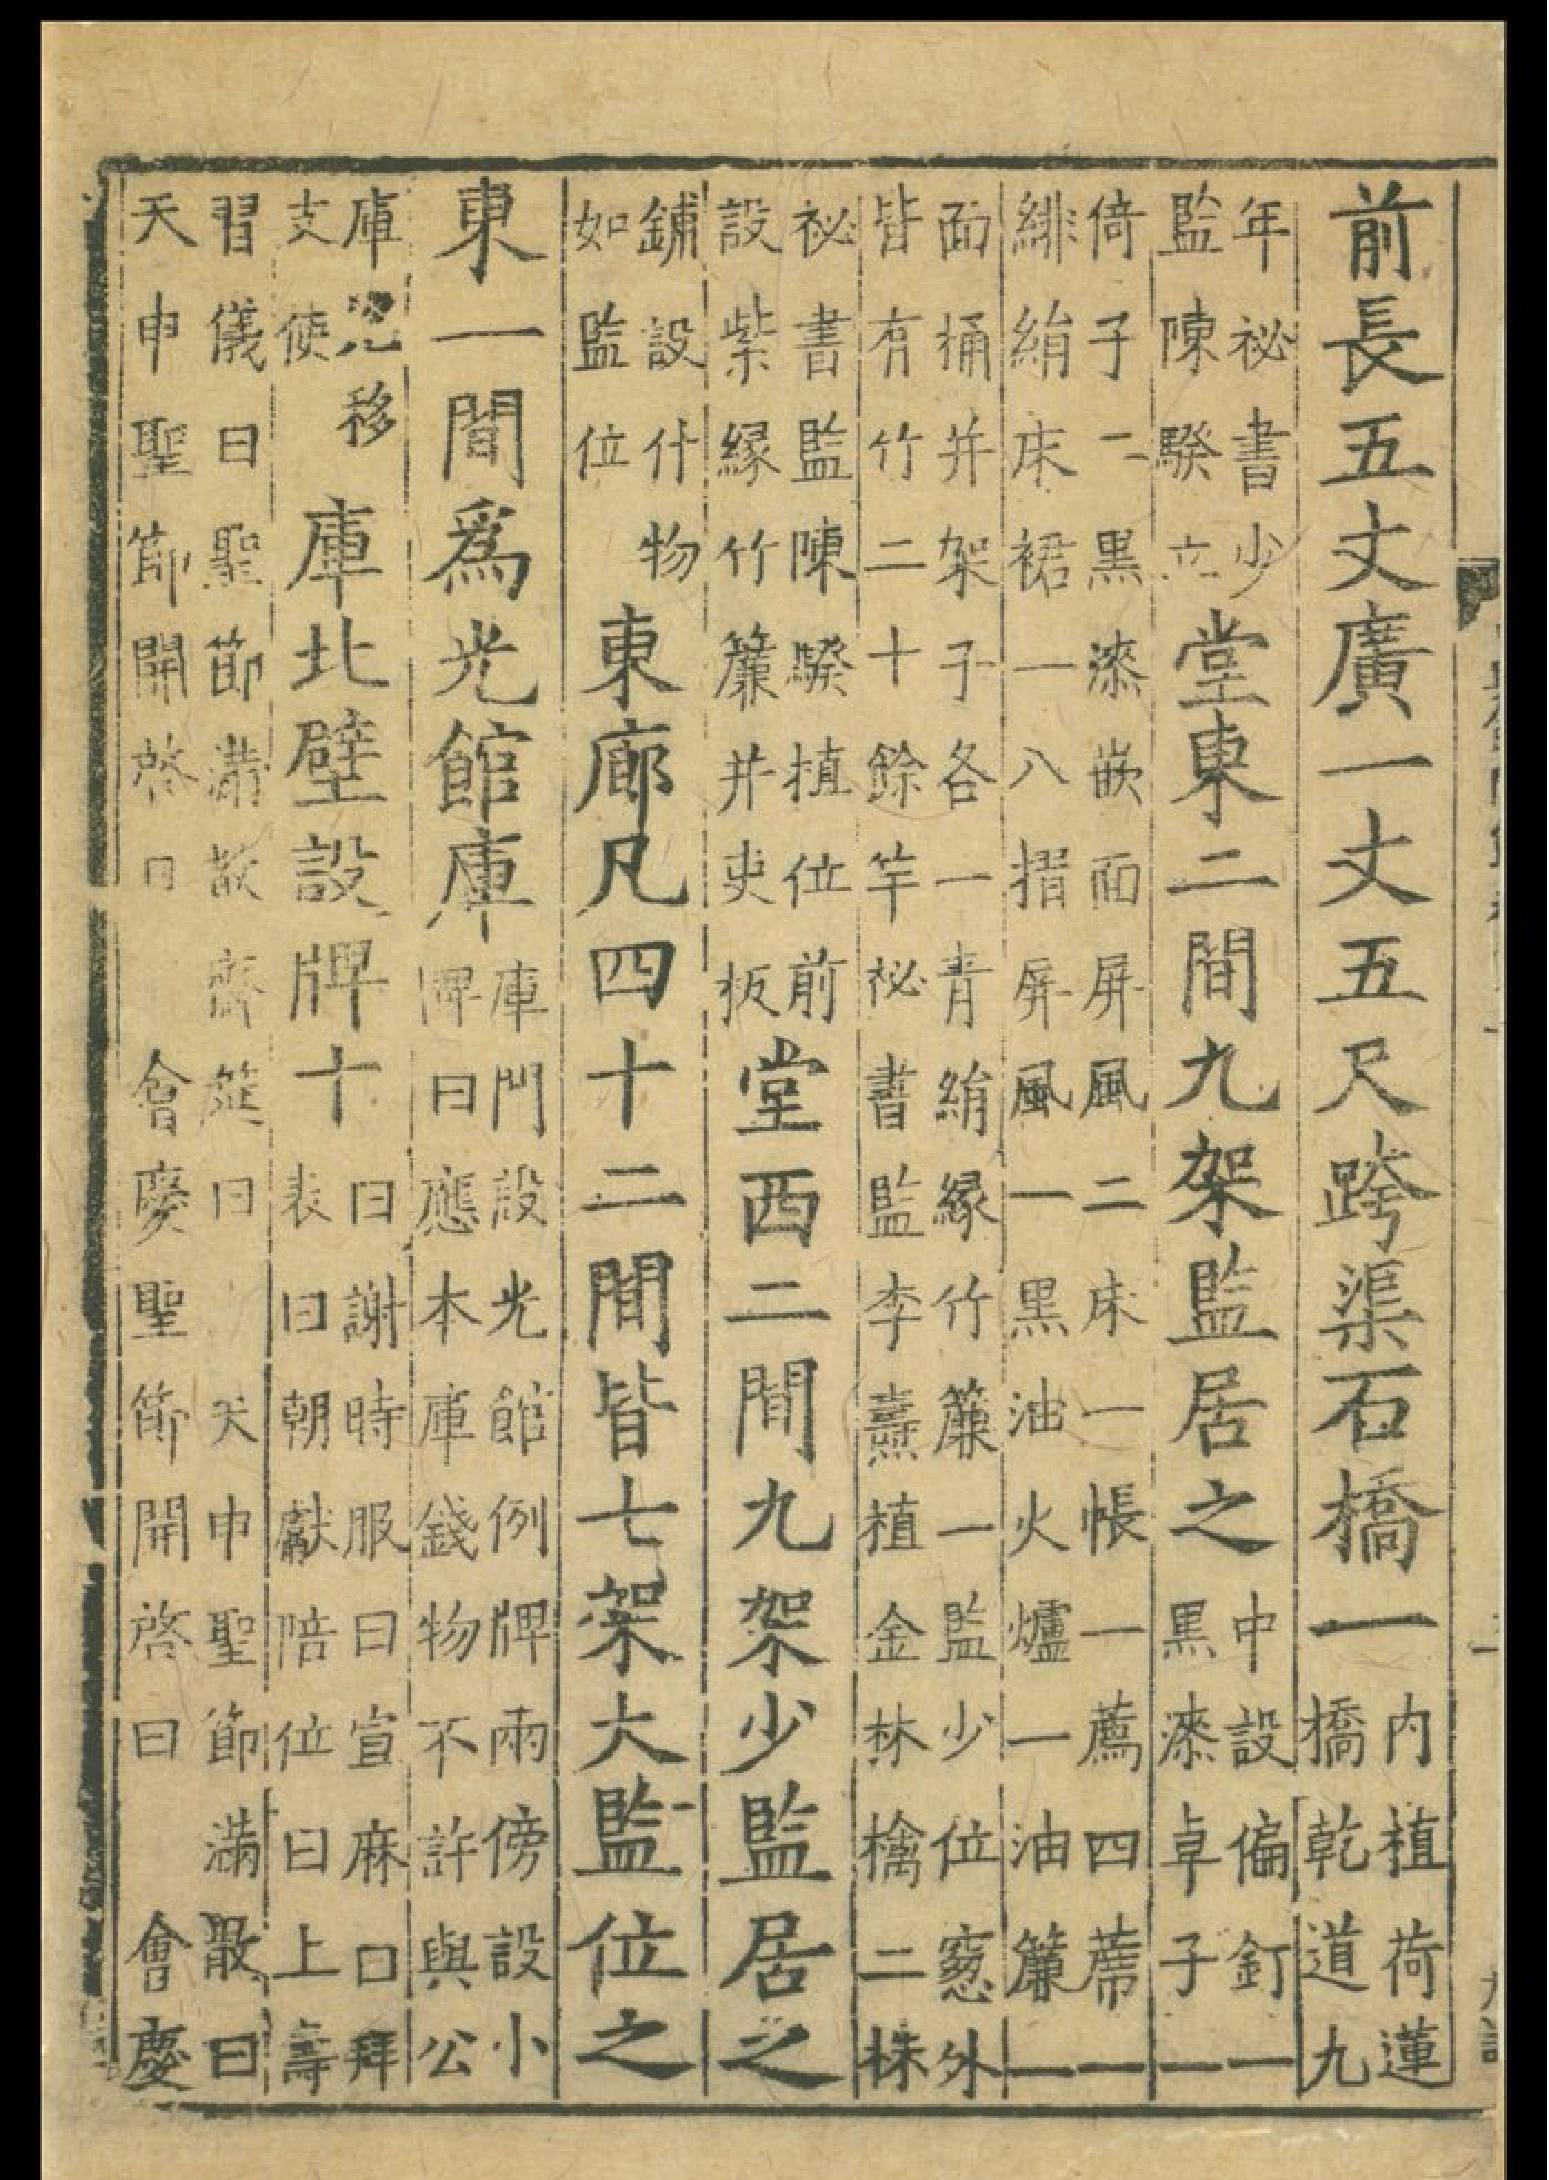 前長五丈廣一丈五尺跨渠石橋一内植荷蓮橋乾道九
年祕書少監陳騤立堂東二間九架監居之中設偏釘一黒漆卓子一
倚子二黒漆嵌面屏風二床一帳一薦四蓆一緋絹床裙一八摺屏風一黒油火爐一油簾一
面桶并架子各一青絹縁竹簾一監少位窓外皆有竹二十餘竿祕書監李燾植金林檎二株
祕書監陳騤植位前設紫縁竹簾并吏板堂西二間九架少監居之
鋪設什物如監位東廊凡四十二間皆七架大監位之
東一間爲光館庫庫門設光館例牌兩傍設小牌曰應本庫錢物不許與公
庫兊移支使庫北壁設牌十曰謝時服曰宣麻曰拜表曰朝獻陪位曰上壽
習儀曰聖節滿散齋筵曰 天申聖節滿散曰天申聖節開啓曰 會慶聖節開啓曰 會慶